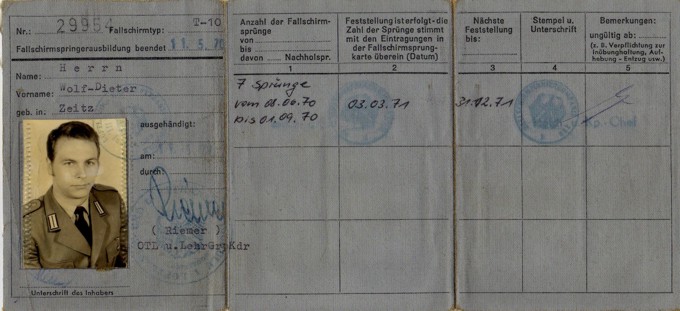 Nr.: 29954 Fallschirmtyp: T-10
Fallschirmspringerausbildung beendet 11.5.70
Name: Herrn
Vorname: Wolf-Dieter
geb. in: Zeitz
ausgehändigt:
am:
durch:
( Riemer )
OTL u.LehrGrpKdr
Unterschrift des Inhabers
Anzahl der Fallschirm-
sprünge
von
bis
davon Nachholspr.
1
7 Sprünge
bis 01.09.70
Feststellung ist erfolgt - die
Zahl der Sprünge stimmt
mit den Eintragungen in
der Fallschirmsprung-
karte überein (Datum)
2
03.03.71
Nächste
Feststellung
bis:
3
31.12.71
Stempel u.
Unterschrift
4
Bemerkungen:
ungültig ab:
(z. B. Verpflichtung zur
Inübunghaltung, Auf-
hebung - Entzug usw.)
5